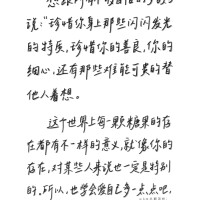 说：“珍惜你身上那些闪闪发光
的特质，珍惜你的善良，你的
细心，还有那些难能可贵的替
他人着想。
这个世界上每一颗糖果的存
在都有不一样的意义，就像你的
存在，对某些人来说也一定是特别
的。所以，也学会爱自己多一点点吧，